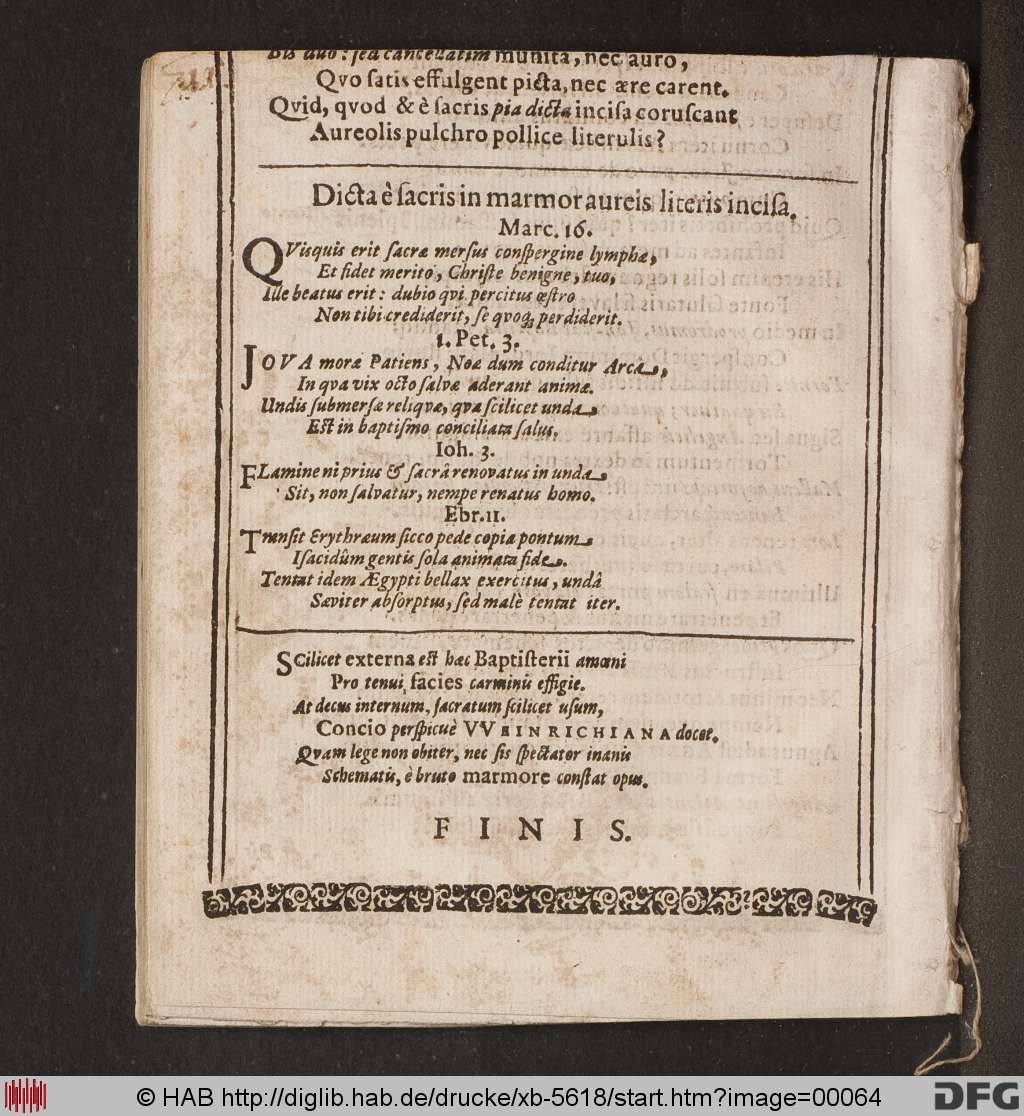 Bis duo: sed cancellatim munita, nec auro,
Qvo satis effulgent picta, nec ære carent.
Qvid, qvod & è sacris pia dicta incisa coruscant
Aureolis pulchro pollice literulis?
Dicta è sacris in marmor aureis literis incisa.
Marc. 16.
QVisquis erit sacræ mersus conspergine lymphæ,
Et fidet meritò, Christe benigne, tuo,
Ille beatus erit: dubio qvi percitus œstro
Non tibi crediderit, se qvoq; perdiderit.
1. Pet. 3.
JOVA moræ Patiens, Noæ dum conditur Arca,
In qva vix octo salvæ aderant animæ.
Undis submersæ reliqvæ, qvæ scilicet unda
Est in baptismo conciliata salus.
Ioh. 3.
FLamine ni prius & sacrâ renovatus in unda
Sit, non salvatur, nempe renatus homo.
Ebr. 11.
Transit Erythræum sicco pede copia pontum
Isacidûm gentis sola animata fide.
Tentat idem Ægypti bellax exercitus, undâ
Sæviter absorptus, sed malè tentat iter.
SCilicet externa est hæc Baptisterii amœni
Pro tenui facies carminis effigie.
At decus internum, sacratum scilicet usum,
Concio perspicuè VVEINRICHIANA docet.
Qvam lege non obiter, nec sis spectator inanis
Schematis, è bruto marmore constat opus.
FINIS.
© HAB http://diglib.hab.de/drucke/xb-5618/start.htm?image=00064
DFG